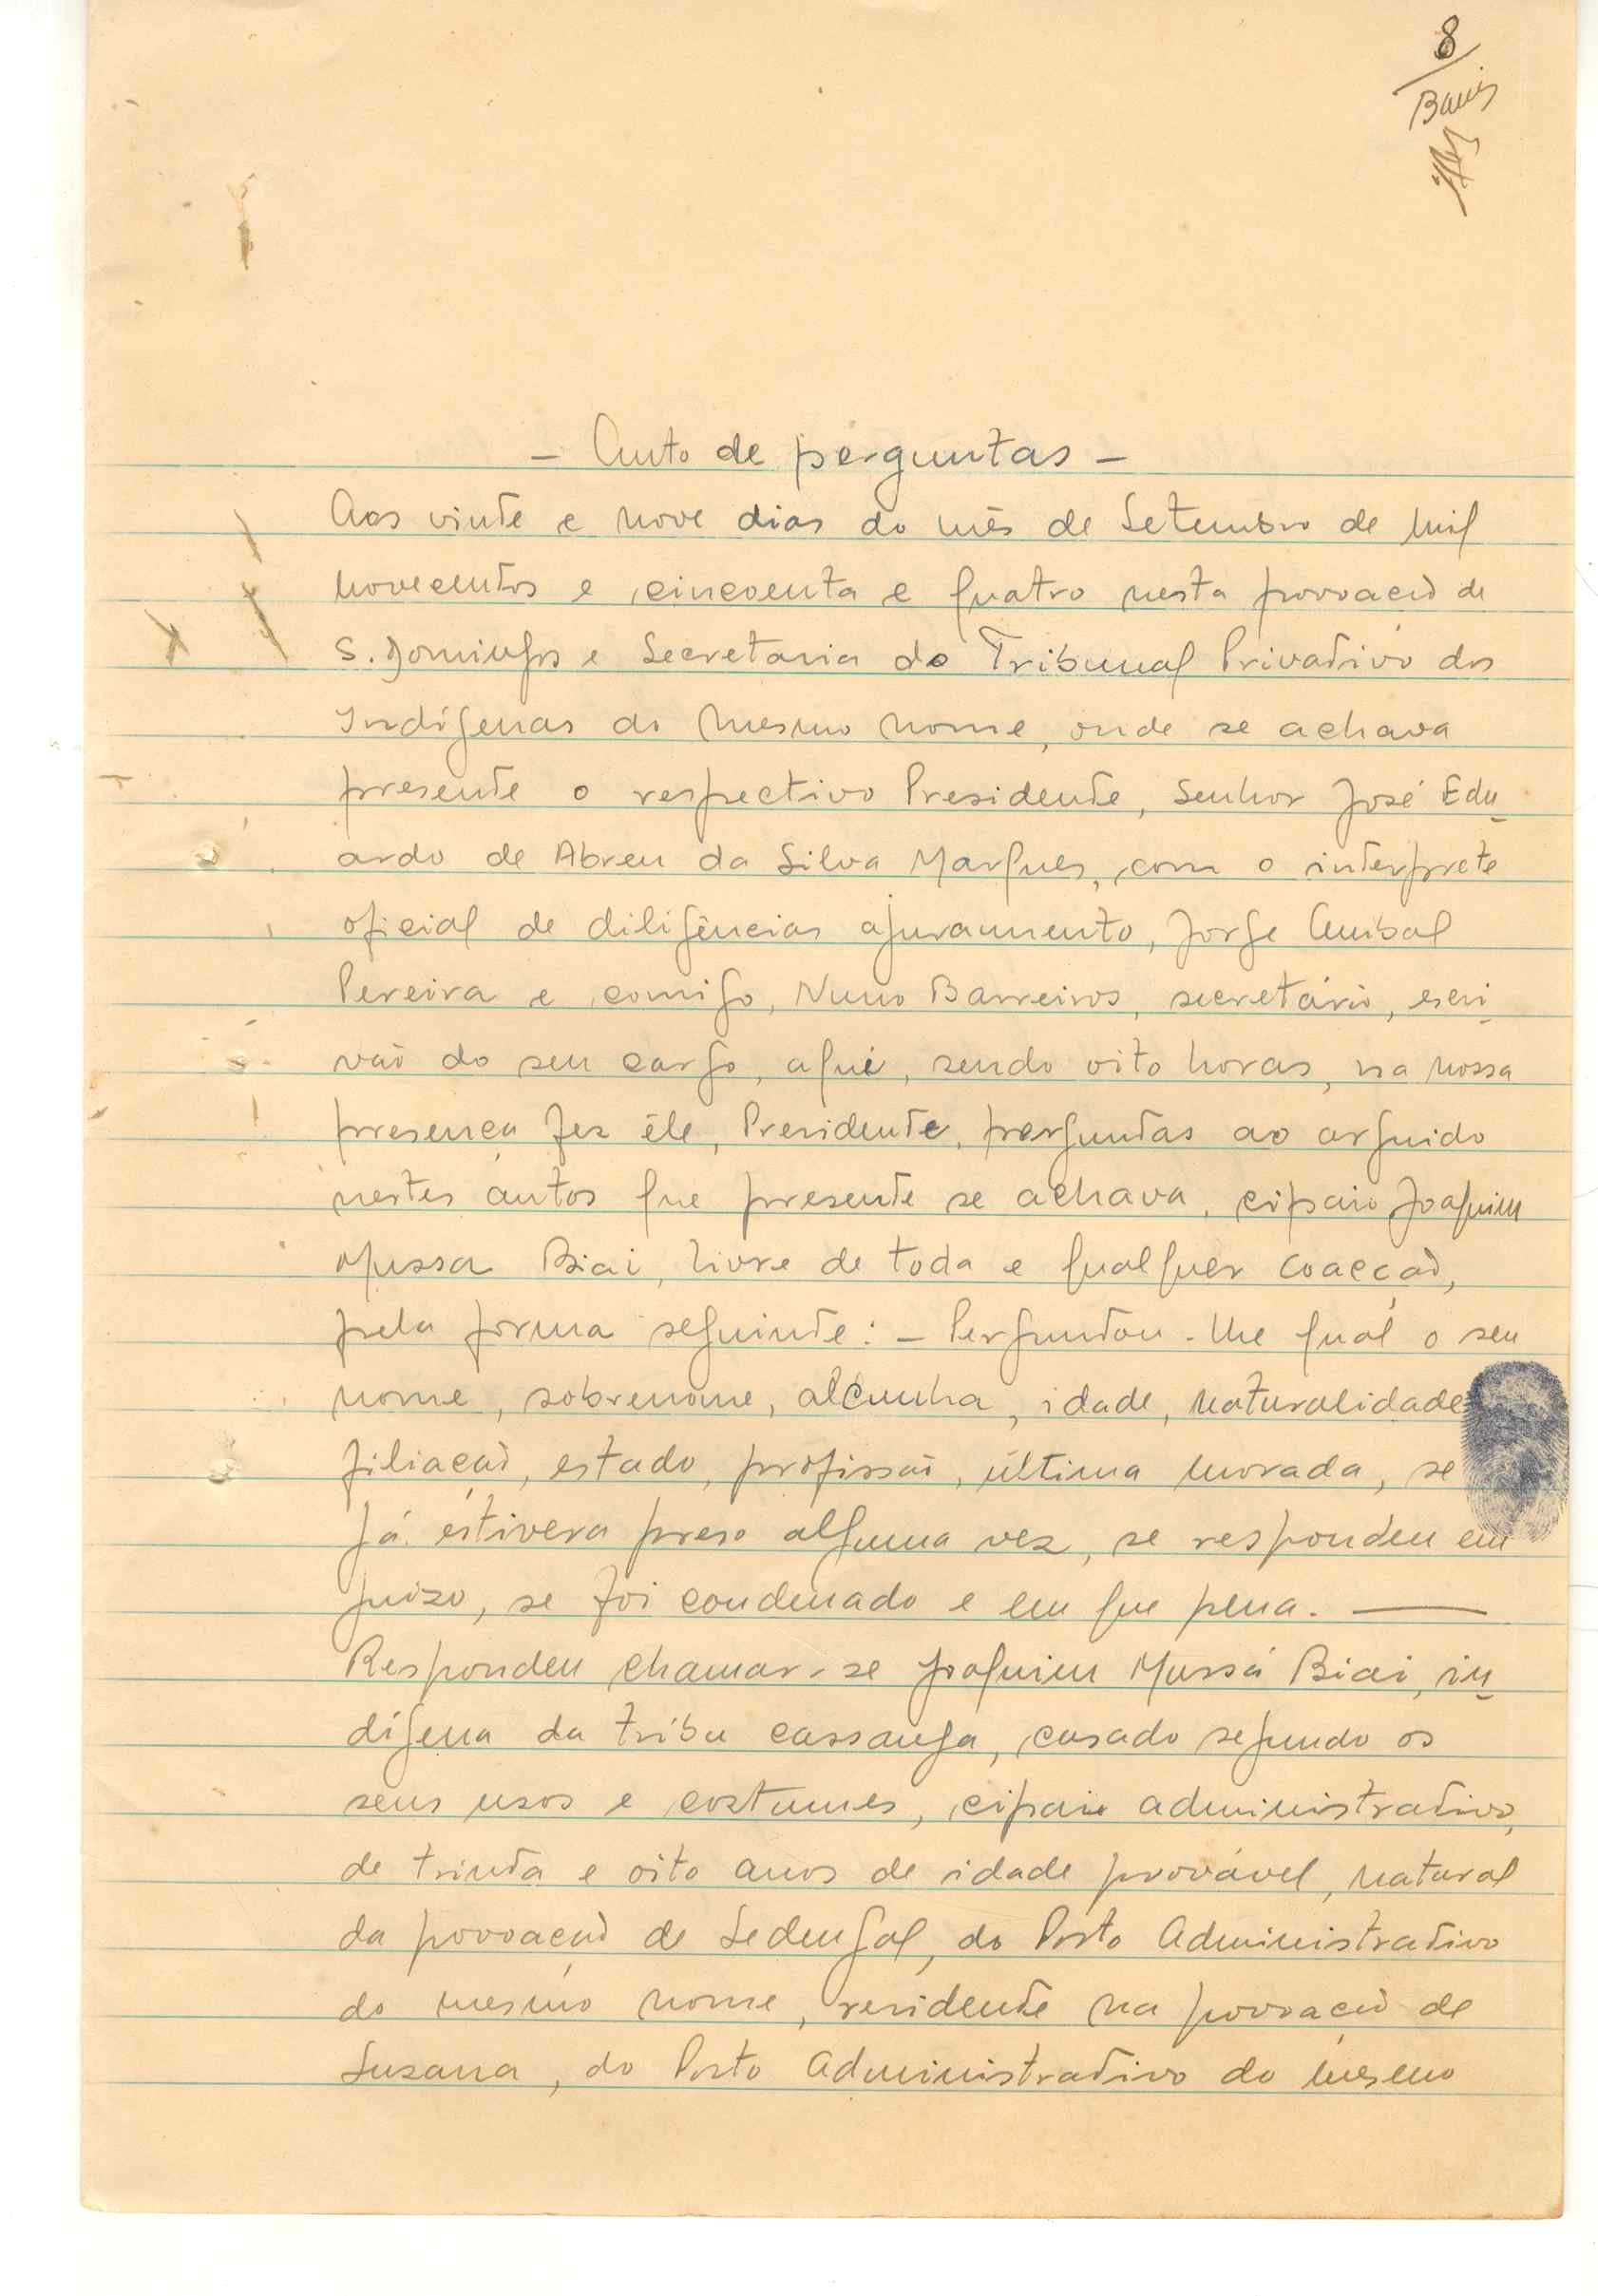 8
- Auto de perguntas -
Aos vinte e nove dias do mês de Setembro de mil
novecentos e cincoenta e quatro nesta povoação de
S. Domingos e Secretaria do Tribunal Privativo dos
Indígenas do mesmo nome, onde se achava
presente o respectivo Presidente, Senhor José Edu-
ardo de Abreu da Silva Marques, com o interprete
oficial de diligências ajuramento, Jorge Anibal
Pereira e comigo, Nuno Barreiros, secretário, escri-
vão do seu cargo, aqui, sendo oito horas, na nossa
presença fez êle, Presidente, perguntas ao arguido
nestes autos que presente se achava, cipaio Joaquim
Mussa Biai, livre de toda e qualquer coacção,
pela forma seguinte: - Perguntou-lhe qual o seu
nome, sobrenome, alcunha, idade, naturalidade
filiação, estado, profissão, última morada, se
já estivera preso alguma vez, se respondeu em
juizo, se foi condenado e em que pena. —
Respondeu chamar-se Joaquim Mussá Biai, in-
dígena da tribu cassanga, casado segundo os
seus usos e costumes, cipaio administrativo,
de trinta e oito anos de idade provável, natural
da povoação de Sedengal, do Posto Administrativo
do mesmo nome, residente na povoação de
Suzana, do Posto Administrativo do mesmo